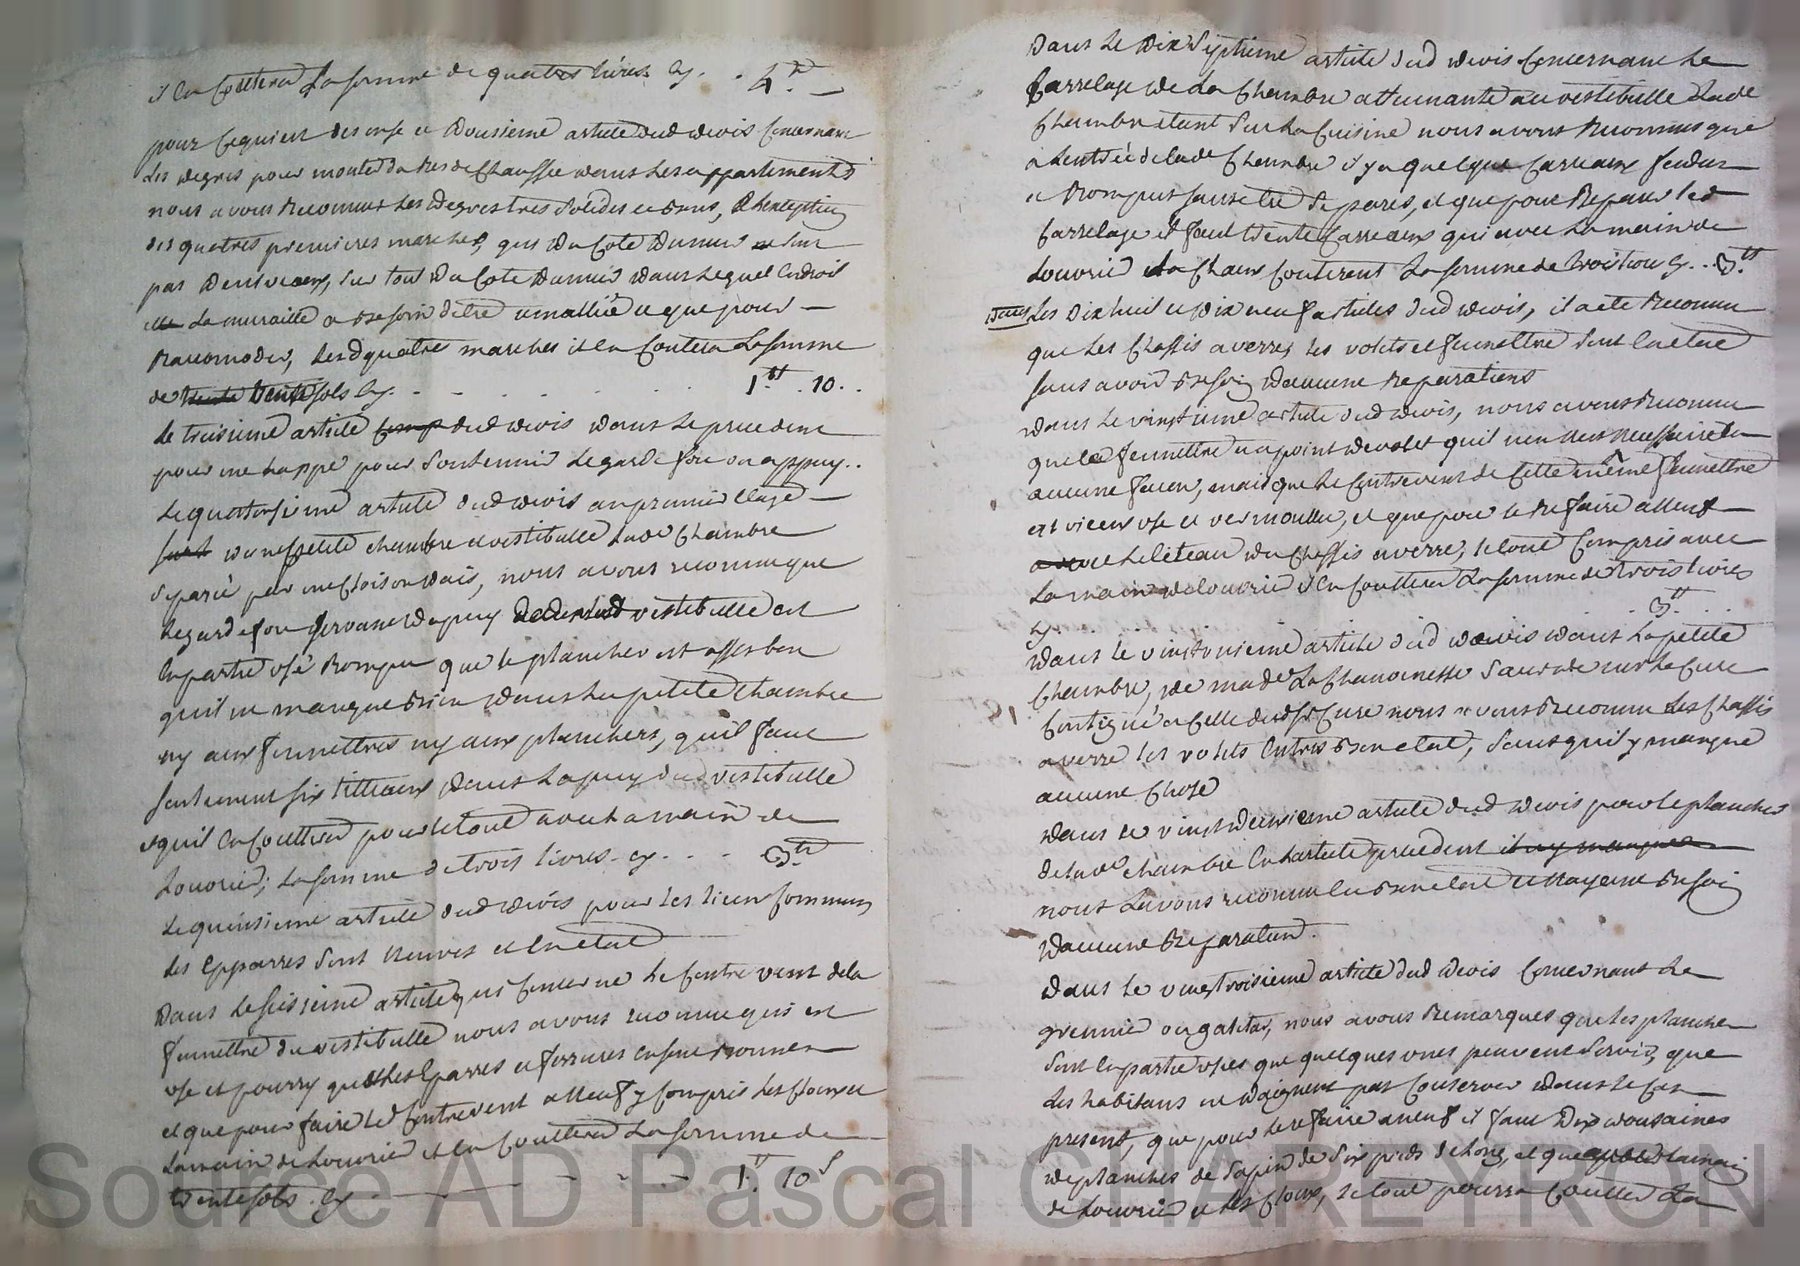 il en couttera La somme de quatres livres cy. . 4.tt —
pour cequi est des onse et Dousieme article dud devis Concernant
Les degres pour monter du Res de Chaussée dans les appartements
nous avons Reconnus Les degres tres solides et bons, a Lexception
des quatres premieres marches, qui du Cote du mur ne sont
pas de niveau, sur tout du Cote du mur dans Lequel Endroit
La muraille a besoin detre et que pour —
Racomoder, Lesd quatres marches il en Coutera La somme
de trente sols Cy. . . . . . . 1.tt . 10 . .
Le treisieme article dud devis dans Le precedent
pour une happe pour soutennir Le garde fou ou appuy . .
Le quatorsieme article dud devis au premier Etage —
dune petite chambre et vestibulle Lade Chambre
separée par une Cloison dais, nous avons reconnu que
Le garde fou servant dapuy vestibulle est
En partie usé Rompu que le plancher est asses bon
quil ne manque Rien dans La petite Chambre
ny aux fennettres ny aux planchers, quil faut
seulement six litteaux dans Lapuy dud vestibulle
et quil En Couttera pour le tout avec La main de
Louvrier; La somme de trois livres. cy . . . 3.tt
Le quinsieme article dud devis pour les lieux Communs
Les Epparres sont neuves et En etat
Dans Le seisieme article qui Concerne Le Contrevent de la
fennettre du vestibulle nous avons reconnu quil est
usé et pourry que Les Eparres et ferrures En sont bonnes
et que pour faire Led Contrevent a neuf y Compris Les Cloux et
La main de Louvrier il en Couttera La somme de —
trente sols. Cy . — — — - - - 1.tt 10 s
Dans Le Dix septieme article dud devis Concernant Le
Carrelage de La Chambre attenante au vestibulle Lade
Chambre etant sur La Cuisine nous avons Reconnus que
a Lentrée de lade Chambre il y a quelque Carreaux fendus
et Rompus sans etre separes, et que pour Reparer led
Carrelage il faut trente Carreaux qui avec La main de
Louvrier et La Chaux Couteront La somme de trois livres cy . . 3.tt
dans Les Dix huit et Dix neuf articles dud devis, il a ete Reconnu
que Les Chassis a verre, les volets et fennettre sont En etat
sans avoir Besoin daucune Reparations
dans Le vingtieme article dud devis, nous avons Reconnu
que La fennettre na point de volet quil nen est necessaire En
aucune facon, mais que Le Contrevent de Cette même fennettre
est vieux usé et vermoullu, et que pour le Refaire a neuf
avec Le liteau du Chassis a verre, le tout Compris avec
La main de Louvrier il En Couttera La somme de trois livres
Cy . . . . 3.tt . . .
Dans le vint unieme article dud devis dans La petite
Chambre, de made La Chanoinesse Sauvade sur La Cure
Contigue a Celle dud sr Curé nous avons Reconnu Les Chassis
a verre les volets En tres Bon etat, sans quil y manque
aucune Chose
dans Le vingt deuxieme article dud devis pour le plancher
de lade chambre En Larticle precedent il ny manque
nous Lavons reconnu En Bon etat et Nayant Besoin
daucune Reparation.
dans Le vingt troisieme article dud devis Concernant Le
grennier ou galetas, nous avons Remarques que les planches
sont En partie usées que quelques unes peuvent servir, que
Les habitans ne daignent pas Conserver dans Le Cas
present, que pour Le refaire a neuf il faut Dix dousaines
de planches de sapin de six pieds de Long, et que La main
de Louvrier et Les Cloux, Le tout pourra Coutter La
Source AD Pascal CHAREYRON